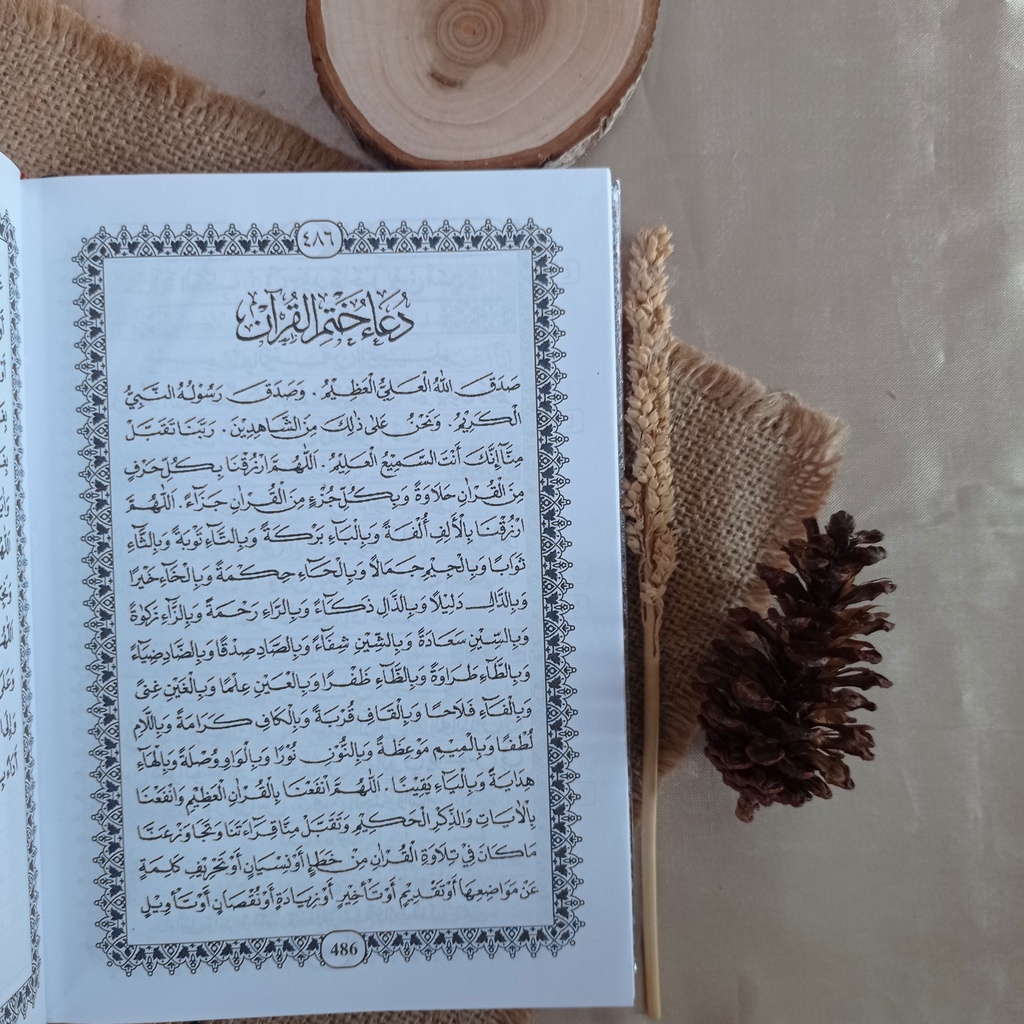 ٤٨٦
دُعَاءُ خَتْمِ الْقُرْآنِ
صَدَقَ اللهُ الْعَلِيُّ الْعَظِيْمُ . وَصَدَقَ رَسُوْلُهُ النَّبِيُّ
الْكَرِيْمُ . وَنَحْنُ عَلَى ذٰلِكَ مِنَ الشَّاهِدِيْنَ . رَبَّنَا تَقَبَّلْ
مِنَّآ إِنَّكَ أَنْتَ السَّمِيْعُ الْعَلِيْمُ . اَللّٰهُمَّ ارْزُقْنَا بِكُلِّ حَرْفٍ
مِنَ الْقُرْاٰنِ حَلَاوَةً وَبِكُلِّ جُزْءٍ مِنَ الْقُرْاٰنِ جَزَآءً . اَللّٰهُمَّ
ارْزُقْنَا بِالْأَلِفِ أُلْفَةً وَبِالْبَآءِ بَرْكَةً وَبِالتَّآءِ تَوْبَةً وَبِالثَّآءِ
ثَوَابًا وَبِالْجِيْمِ جَمَالًا وَبِالْحَآءِ حِكْمَةً وَبِالْخَآءِ خَيْرًا
وَبِالدَّالِ دَلِيْلًا وَبِالذَّالِ ذَكَآءً وَبِالرَّاءِ رَحْمَةً وَبِالزَّآءِ زَكٰوةً
وَبِالسِّيْنِ سَعَادَةً وَبِالشِّيْنِ شِفَآءً وَبِالصَّادِ صِدْقًا وَبِالضَّادِ ضِيَآءً
وَبِالطَّآءِ طَرَاوَةً وَبِالظَّآءِ ظَفْرًا وَبِالْعَيْنِ عِلْمًا وَبِالْغَيْنِ غِنًى
وَبِالْفَآءِ فَلَاحًا وَبِالْقَافِ قُرْبَةً وَبِالْكَافِ كَرَامَةً وَبِاللَّامِ
لُطْفًا وَبِالْمِيْمِ مَوْعِظَةً وَبِالنُّوْنِ نُوْرًا وَبِالْوَاوِ وُصْلَةً وَبِالْهَآءِ
هِدَايَةً وَبِالْيَآءِ يَقِيْنًا . اَللّٰهُمَّ انْفَعْنَا بِالْقُرْاٰنِ الْعَظِيْمِ وَانْفَعْنَا
بِالْاٰيَاتِ وَالذِّكْرِ الْحَكِيْمِ وَتَقَبَّلْ مِنَّا قِرَآءَتَنَا وَتَجَاوَزْ عَنَّا
مَا كَانَ فِيْ تِلَاوَةِ الْقُرْاٰنِ مِنْ خَطَإٍ أَوْ نِسْيَانٍ أَوْ تَحْرِيْفِ كَلِمَةٍ
عَنْ مَوَاضِعِهَا أَوْ تَقْدِيْمٍ أَوْ تَأْخِيْرٍ أَوْ زِيَادَةٍ أَوْ نُقْصَانٍ أَوْ تَأْوِيْلٍ
486